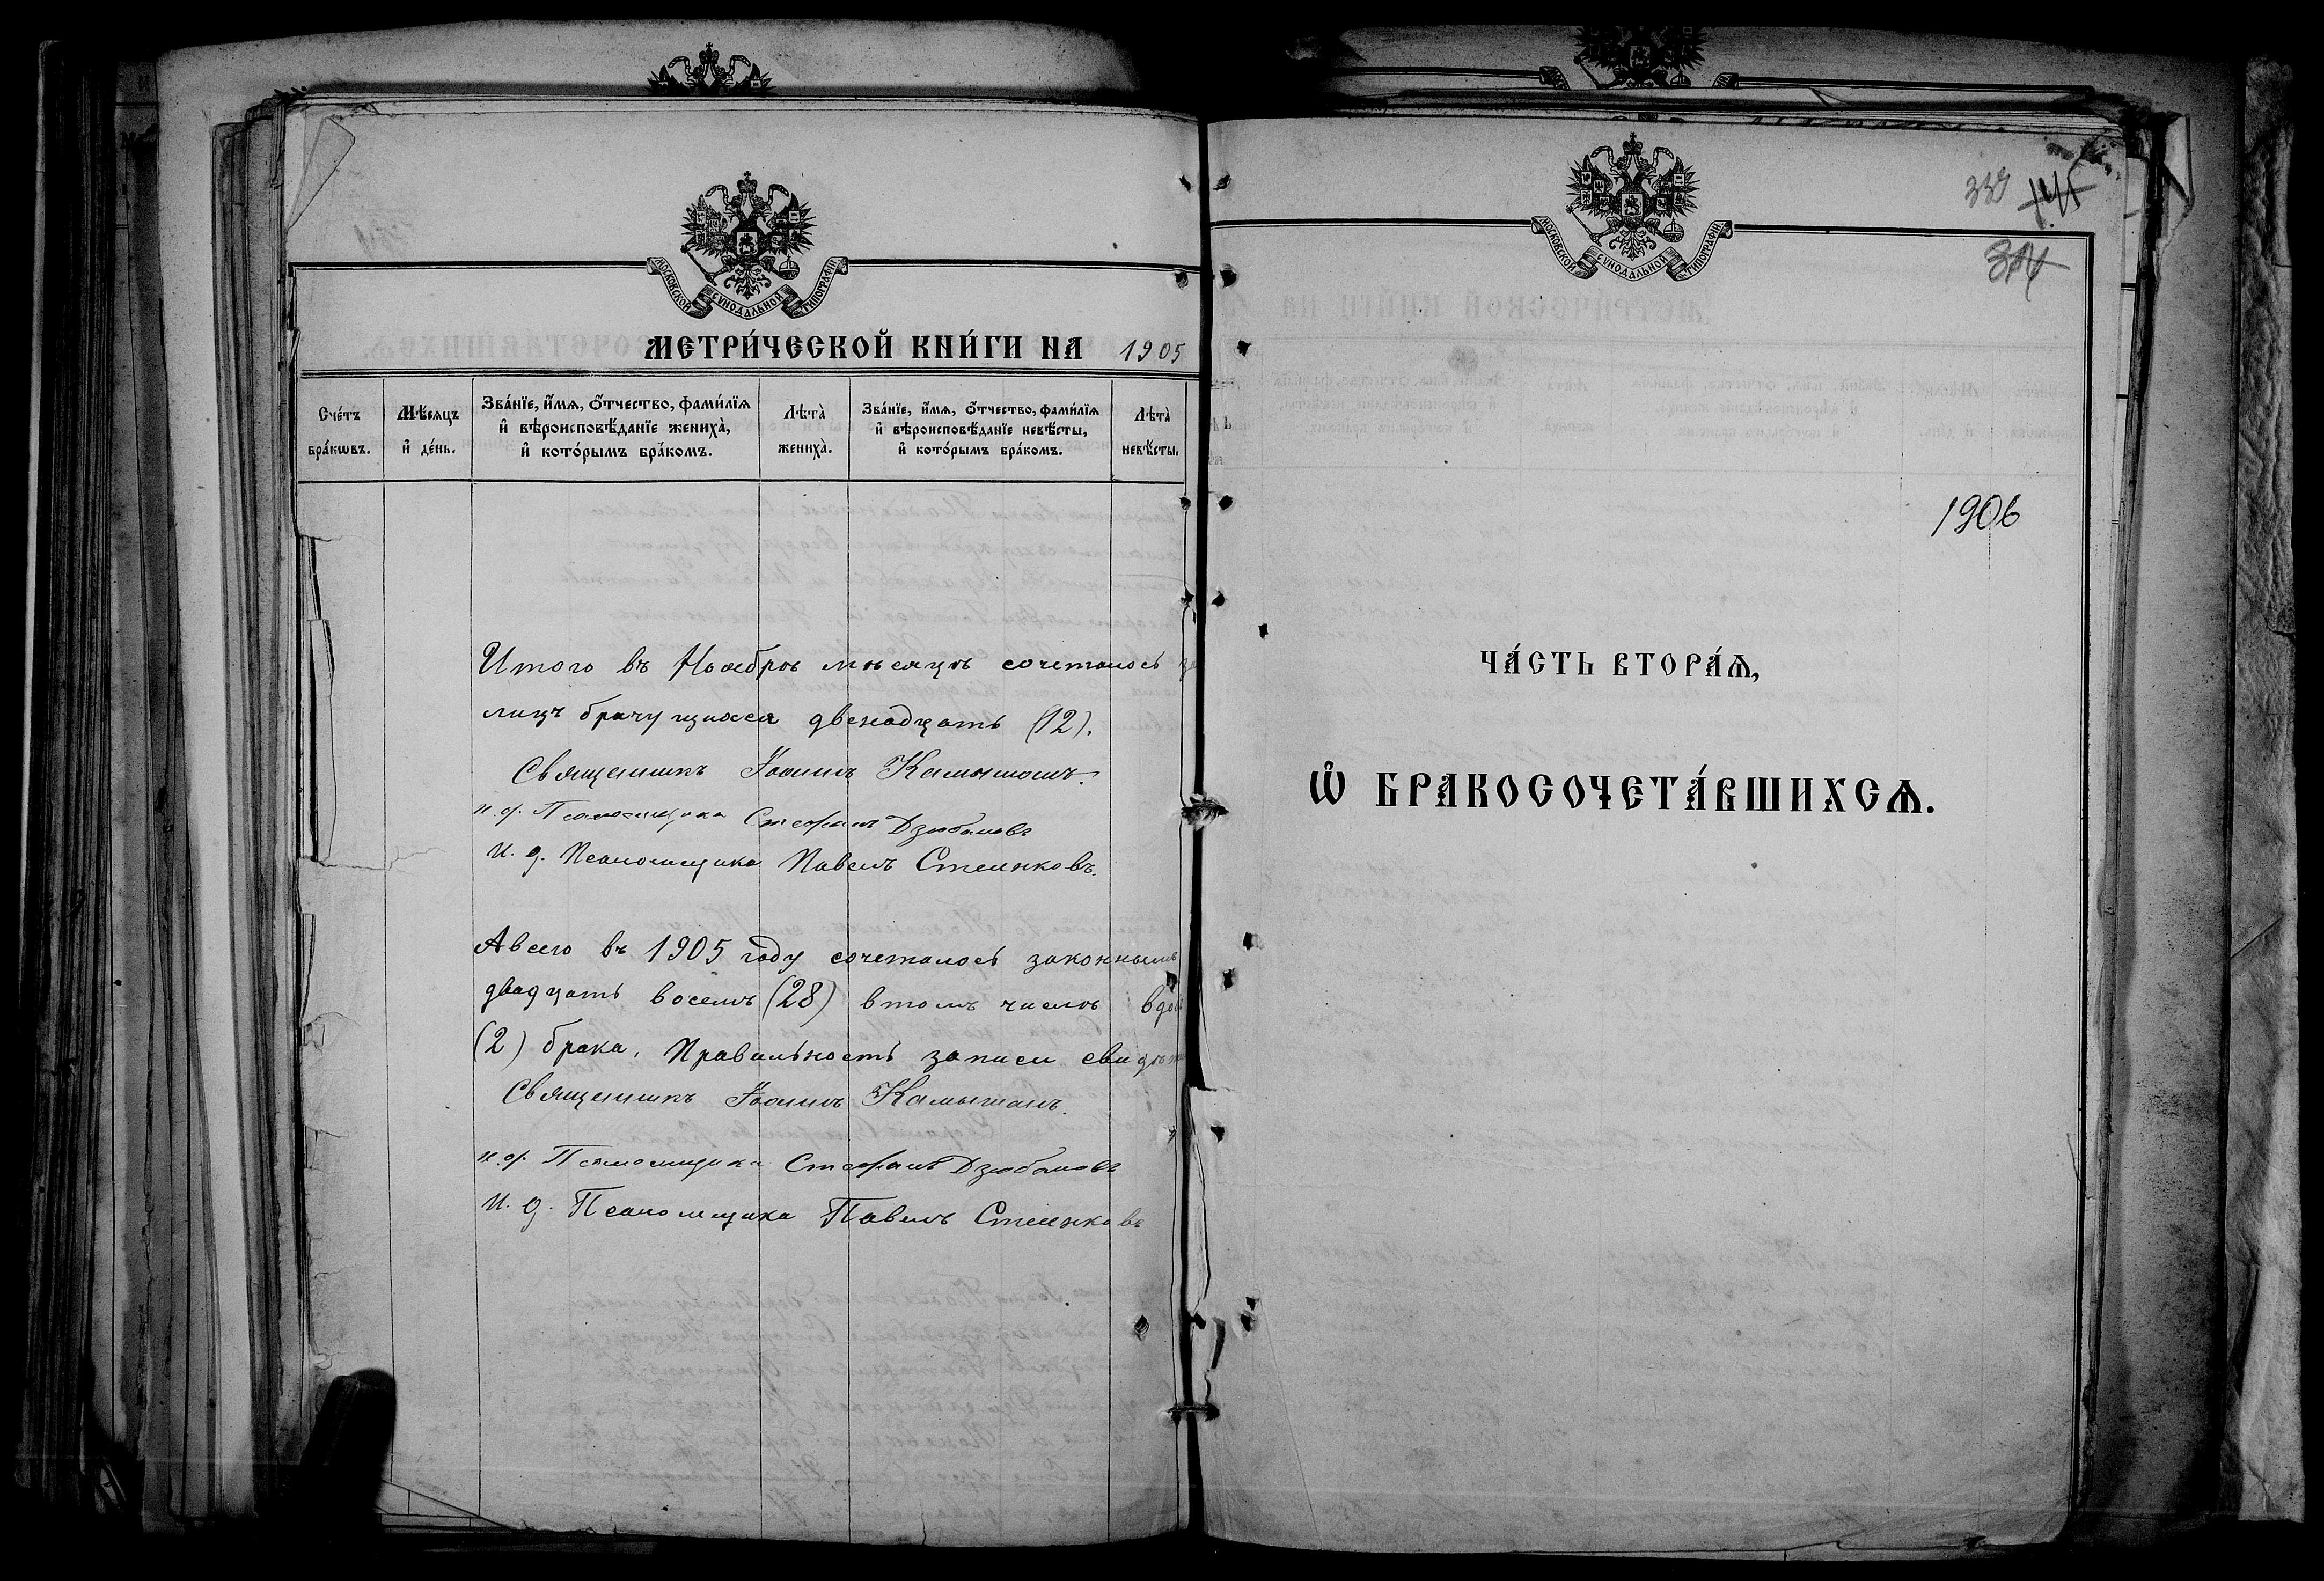 МОСКОВСКОЙ СѴНОДАЛЬНОЙ ТИПОГРАФІИ
МЕТРИ́ЧЕСКОЙ КНИ́ГИ НА 1905
Сче́тъ бра́кѡвъ.
Мѣ́сяцъ и҆ де́нь.
Зва́нїе, и҆́мѧ, ѻ҆́тчество, фами́лїѧ и҆ вѣроисповѣ́данїе жениха̀, и҆ кото́рымъ бра́комъ.
Лѣта̀ жениха̀.
Зва́нїе, и҆́мѧ, ѻ҆́тчество, фами́лїѧ и҆ вѣроисповѣ́данїе невѣ́сты, и҆ кото́рымъ бра́комъ.
Лѣта̀ невѣ́сты.
Итого въ Ноябрѣ мѣсяцѣ сочеталось
лицъ брачущихся двенадцать (12).
Священникъ Іоаннъ Камышанъ.
и. д. Псаломщика Стефанъ Дзюбановъ
И. д. Псаломщика Павелъ Стеенковъ.
Авсего въ 1905 году сочеталось законнымъ
двадцать восемь (28) втомъ числѣ
(2) брака. Правильность записи
Священникъ Іоаннъ Камышанъ.
и. д. Псаломщика Стефанъ Дзюбановъ
И. д. Псаломщика Павелъ Стеенковъ
МОСКОВСКОЙ СѴНОДАЛЬНОЙ ТИПОГРАФІИ
339
1906
ЧА́СТЬ ВТОРА́Ѧ,
Ѡ҆ БРАКОСОЧЕТА́ВШИХСѦ.